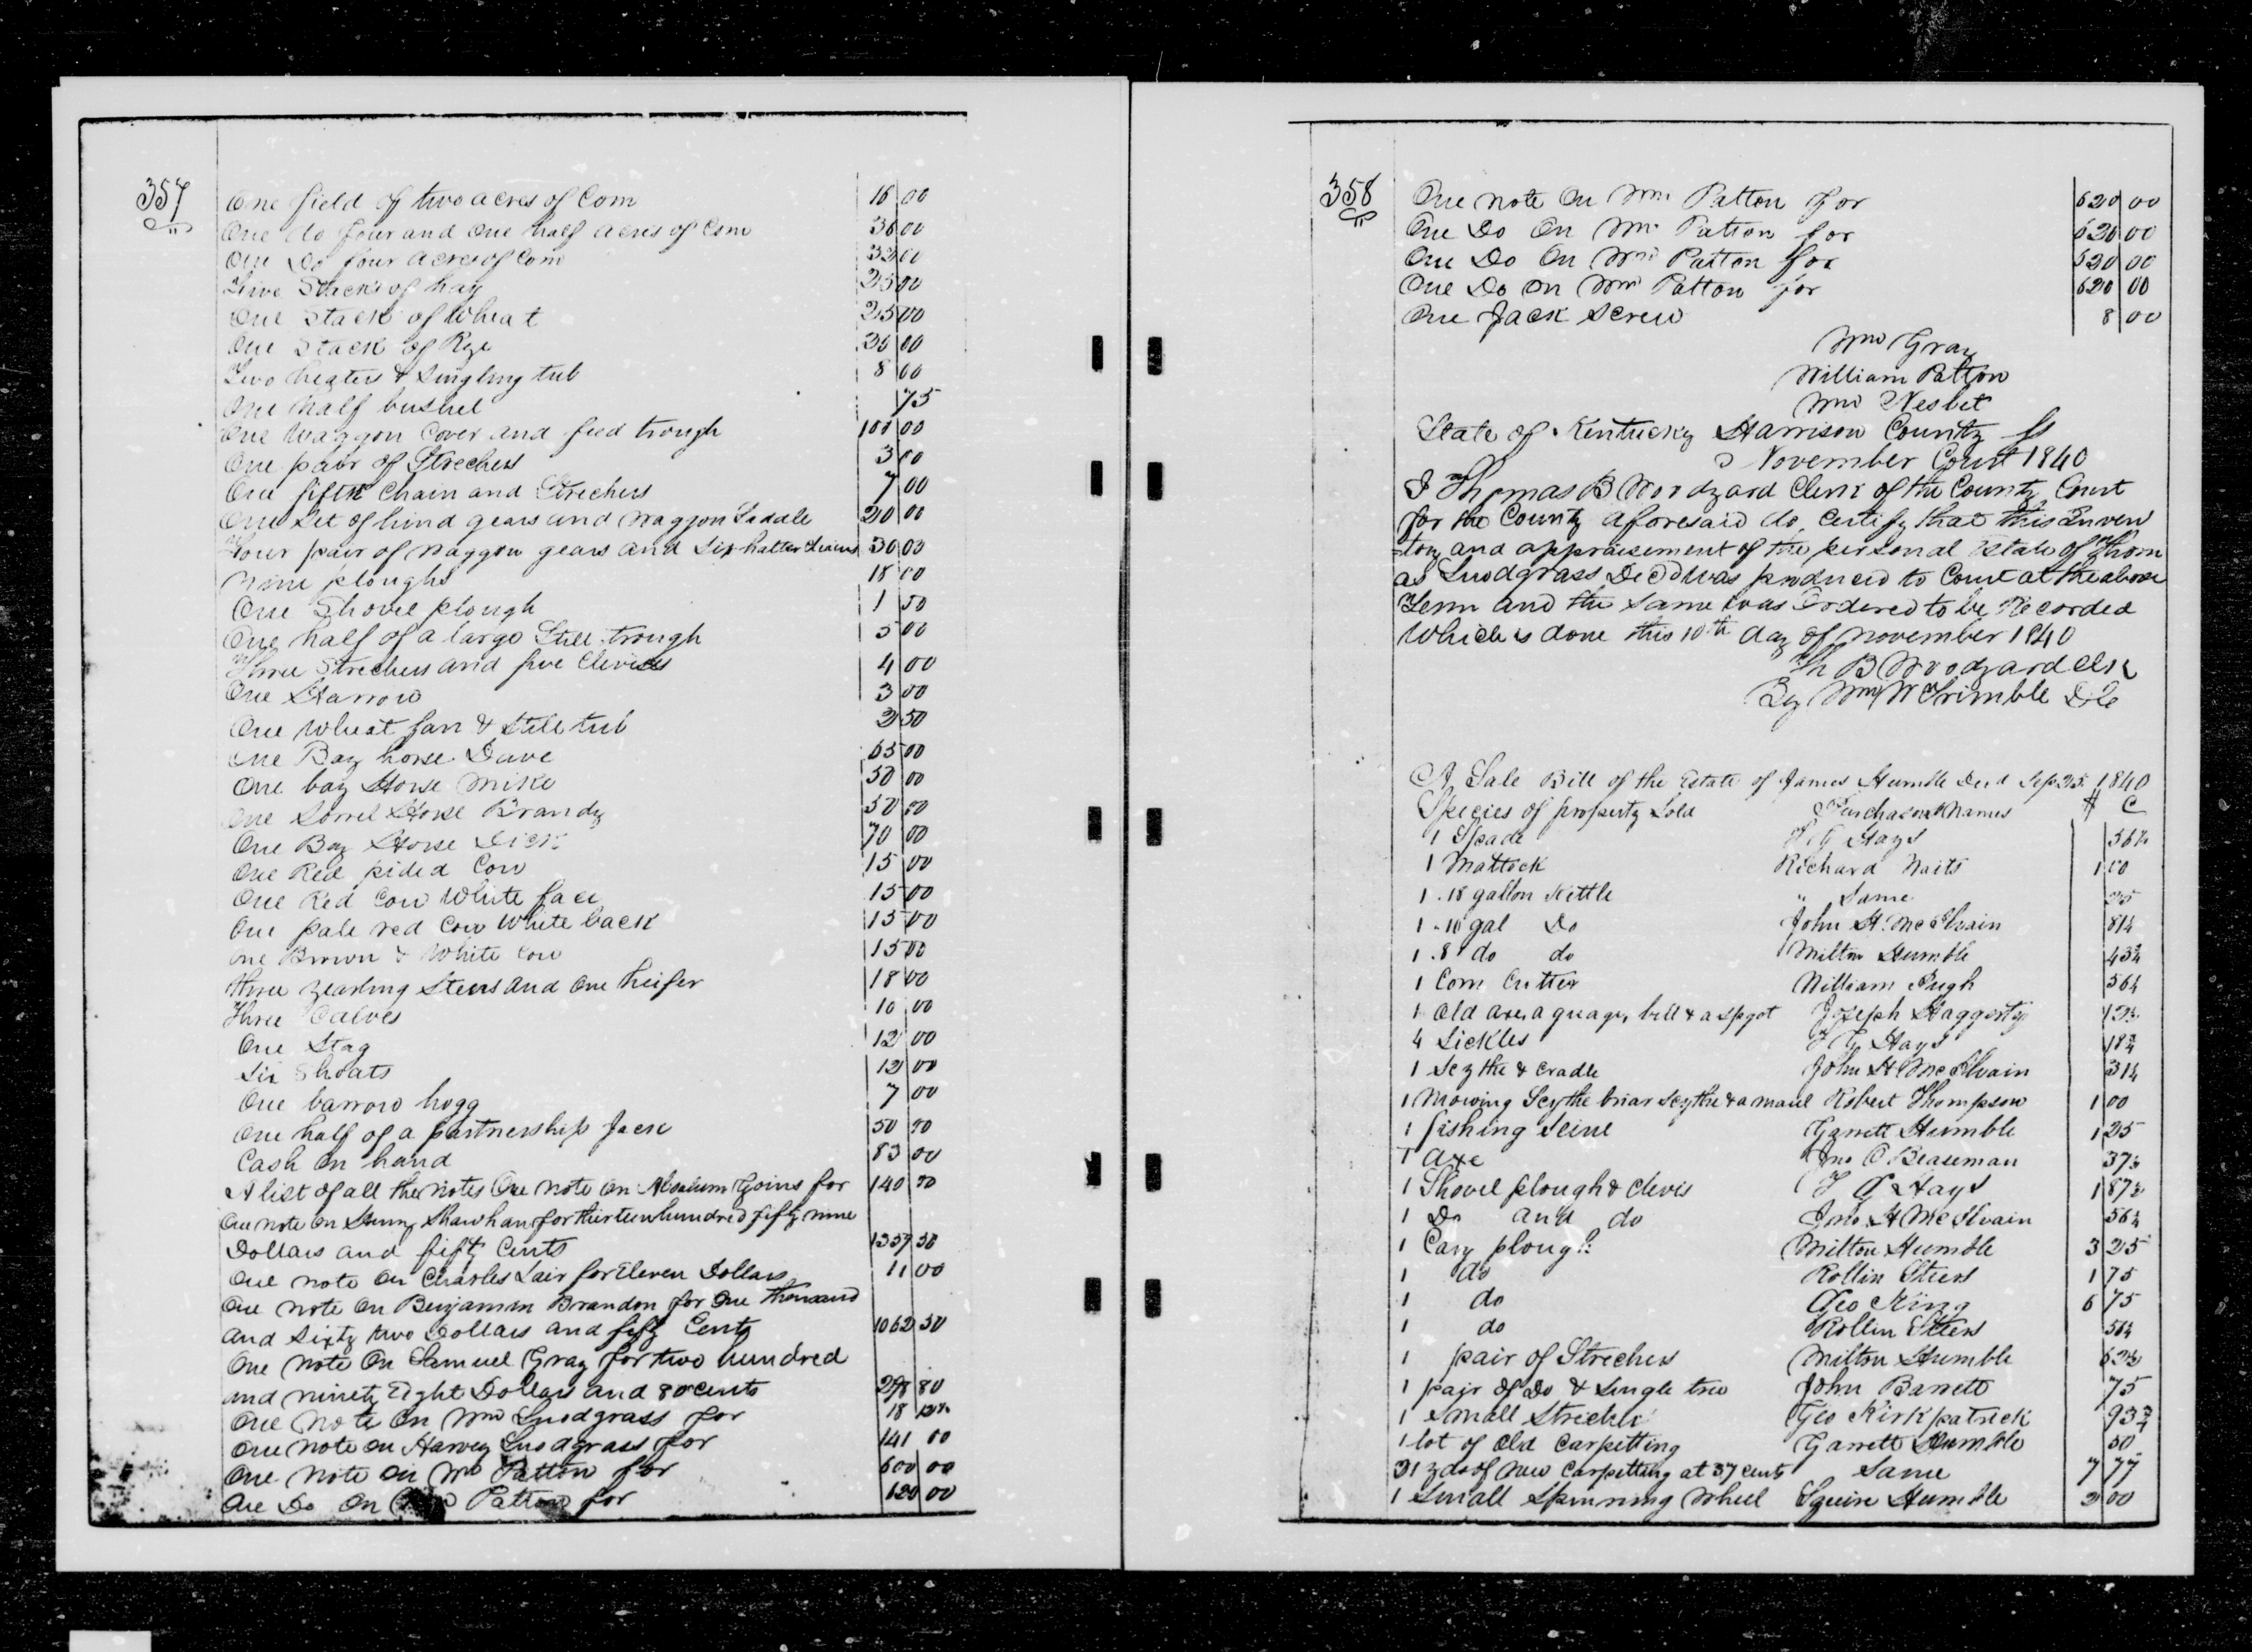 357
One field of two acres of Corn 16 00
One do four and one half acres of Corn 36 00
One Do four acres of Corn 32 00
Five Stacks of hay 25 00
One Stack of Wheat 25 00
One Stack of Rye 30 00
Two heaters & Singling tub 8 00
One half bushel 75
One Waggon Cover and feed trough 100 00
One pair of Strechers 3 00
One fifth Chain and Strechers 7 00
One Set of hind gears and Waggon Saddle 20 00
Four pair of Waggon gears and Six halter Chains 30 00
Nine ploughs 18 00
One Shovel plough 1 50
One half of a large Still trough 5 00
Three Strechers and five Clevises 4 00
One Harrow 3 00
One Wheat fan & Still tub 2 50
One Bay horse Dave 65 00
One bay Horse Mike 50 00
One Sorrel Horse Brandy 50 00
One Bay Horse Dick 70 00
One Red pided Cow 15 00
One Red Cow White face 15 00
One pale red Cow White back 15 00
One Brown & White Cow 15 00
Three yearling Steers and One heifer 18 00
Three Calves 10 00
One Stag 12 00
Six Shoats 12 00
One barrow hogg 7 00
One half of a partnership Jack 50 00
Cash on hand 83 00
A list of all the notes One Note on Absalum Goins for 140 00
One note on Henry Shawhan for thirteen hundred fifty nine
Dollars and fifty Cents 1359 50
One note on Charles Lair for Eleven Dollars 11 00
One note on Benjamin Brandon for One thousand
and Sixty two Dollars and fifty Cents 1062 50
One Note On Samuel Gray for two hundred
and ninety Eight Dollars and 80 cents 298 80
One Note on Wm Snodgrass for 18
One note on Harvey Snodgrass for 141 00
One Note on Wm Patton for 600 00
One Do On Patton for 620 00
358
One note On Wm Patton for 620 00
One Do On Wm Patton for 620 00
One Do On Wm Patton for 520 00
One Do on Wm Patton for 620 00
One Jack Screw 8 00
Wm Gray
William Patton
Wm Nesbit
State of Kentucky Harrison County Ss
November Court 1840
I Thomas B Woodyard Clerk of the County Court
for the County aforesaid do Certify that this Inven
=tory and appraisement of the personal Estate of Thom
as Snodgrass Decd was produced to Court at the above
Term and the Same was Ordered to be Recorded
Which is done this 10th day of November 1840
Th B Woodyard Clk
By Wm W Trimble D C
A Sale Bill of the Estate of James Humble Decd Sep 25 1840
Species of property Sold Purchasers Names $ C
1 Spade T G Hays 56¼
1 Mattock Richard Waits 1 00
1 .18 gallon Kettle " Same 25
1 .10 gal Do John H. McIlvain 81¼
1 .8 do do Milton Humble 43¾
1 Corn Cutter William Pugh 56¼
1 Old axe, a guage, bell & a spgot Joseph Haggerty
4 Sickles T G Hays 18¾
1 Scythe & Cradle John H McIlvain 31¼
1 Mowing Scythe briar Scythe & a maul Robert Thompson 1 00
1 fishing Seine Garrett Humble 1 25
1 axe Jno C Beaseman 37½
1 Shovel plough & Clevis T G Hays 1 87½
1 Do and do Jno. H McIlvain 56¼
1 Cary plough Milton Humble 3 25
1 do Rollin Steers 1 75
1 do Geo King 6 75
1 do Rollin Steers 56¼
1 pair of Strechers Milton Humble 62½
1 pair of Do & Single tree John Barrett 75
1 Small Strecher Geo Kirkpatrick 93¾
1 lot of Old Carpitting Garrett Humble 50
21 yds of New Carpitting at 37 cents Same 7 77
1 Small Spinning Wheel Squire Humble 2 00